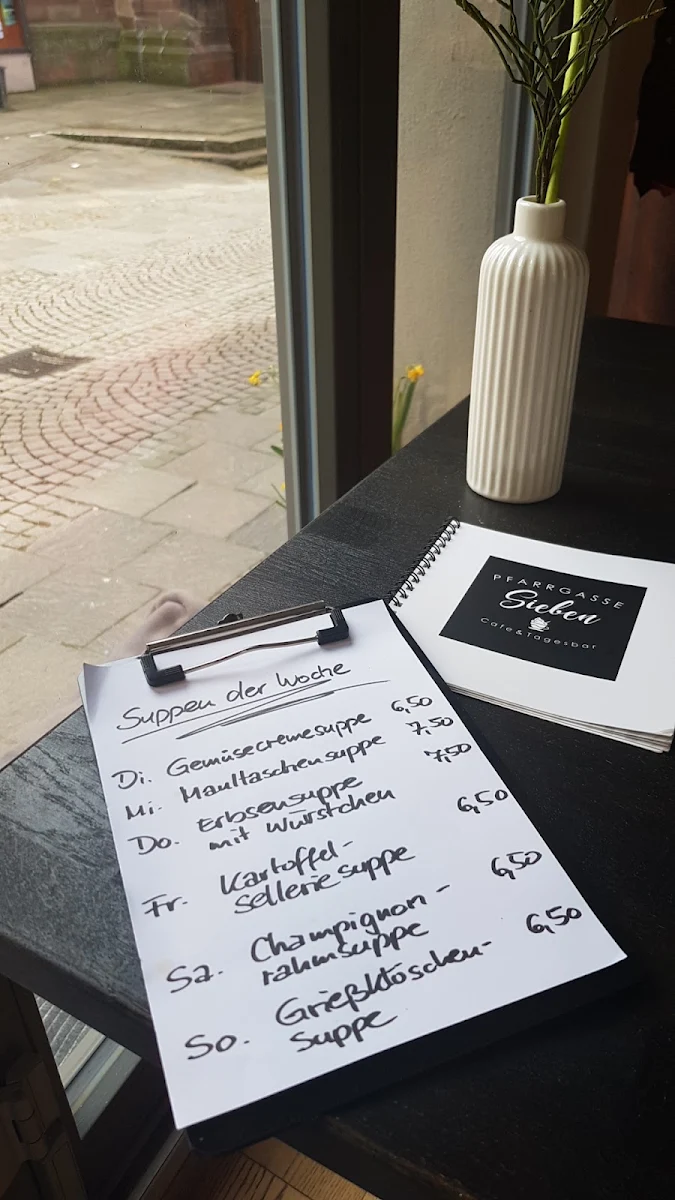 Suppen der Woche
Di. Gemüsecremesuppe 6,50
Mi. Maultaschensuppe 7,50
Do. Erbsensuppe 7,50
mit Würstchen
Fr. Kartoffel- 6,50
selleriesuppe
Sa. Champignon- 6,50
rahmsuppe
So. Grießklöschen- 6,50
suppe
PFARRGASSE
Sieben
Cafe & Tagesbar